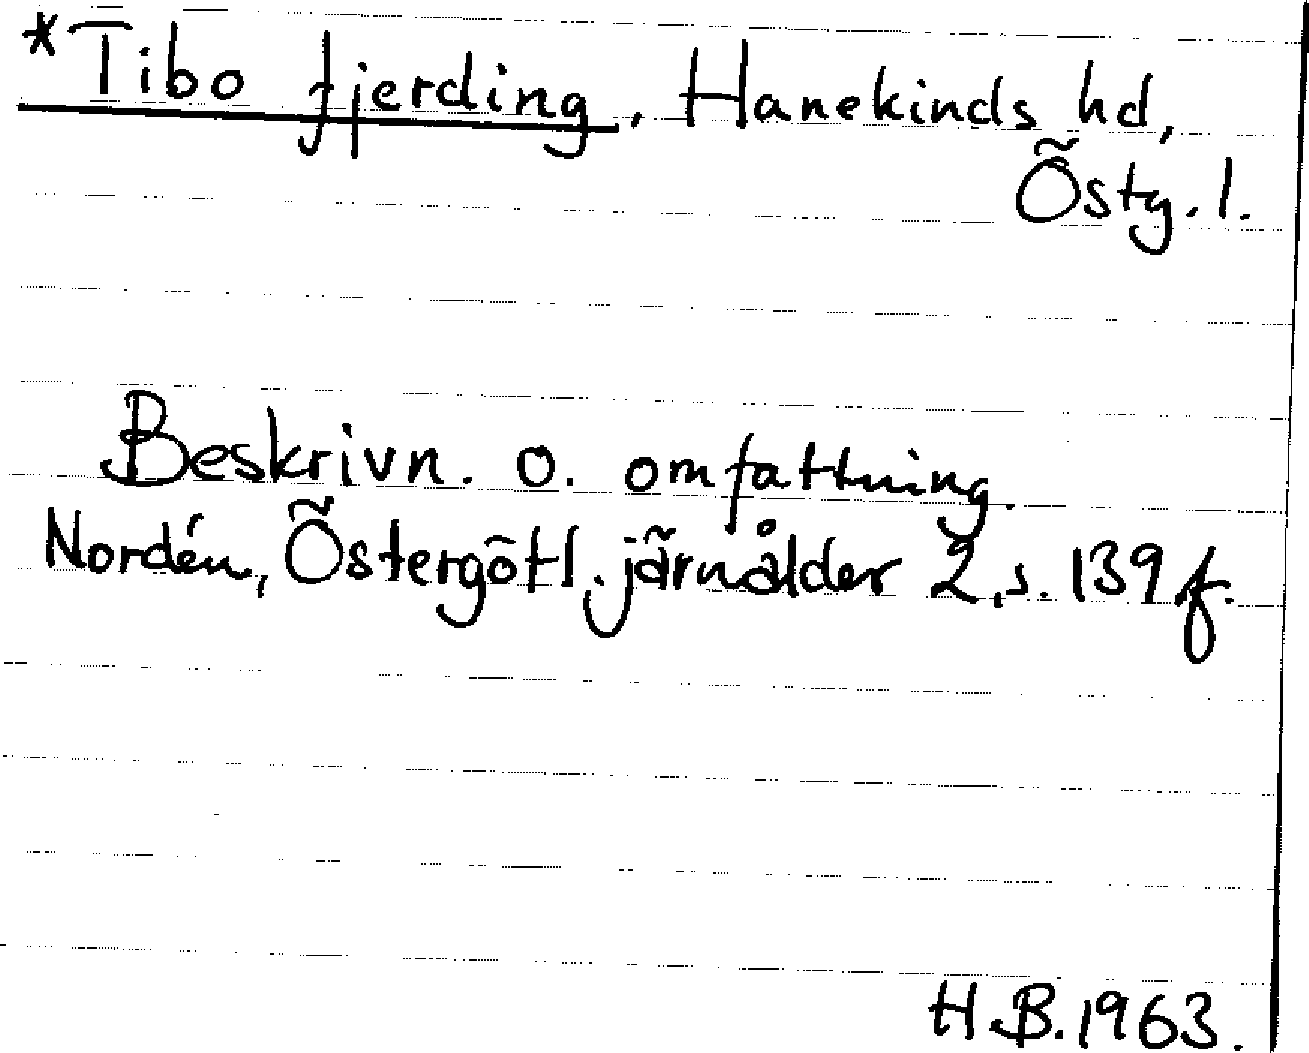 *Tibo fjerding, Hanekinds hd,
Östg. l.
Beskrivn. o. omfattning.
Nordén, Östergötl. järnålder 2, s. 139 f.
H.B. 1963.